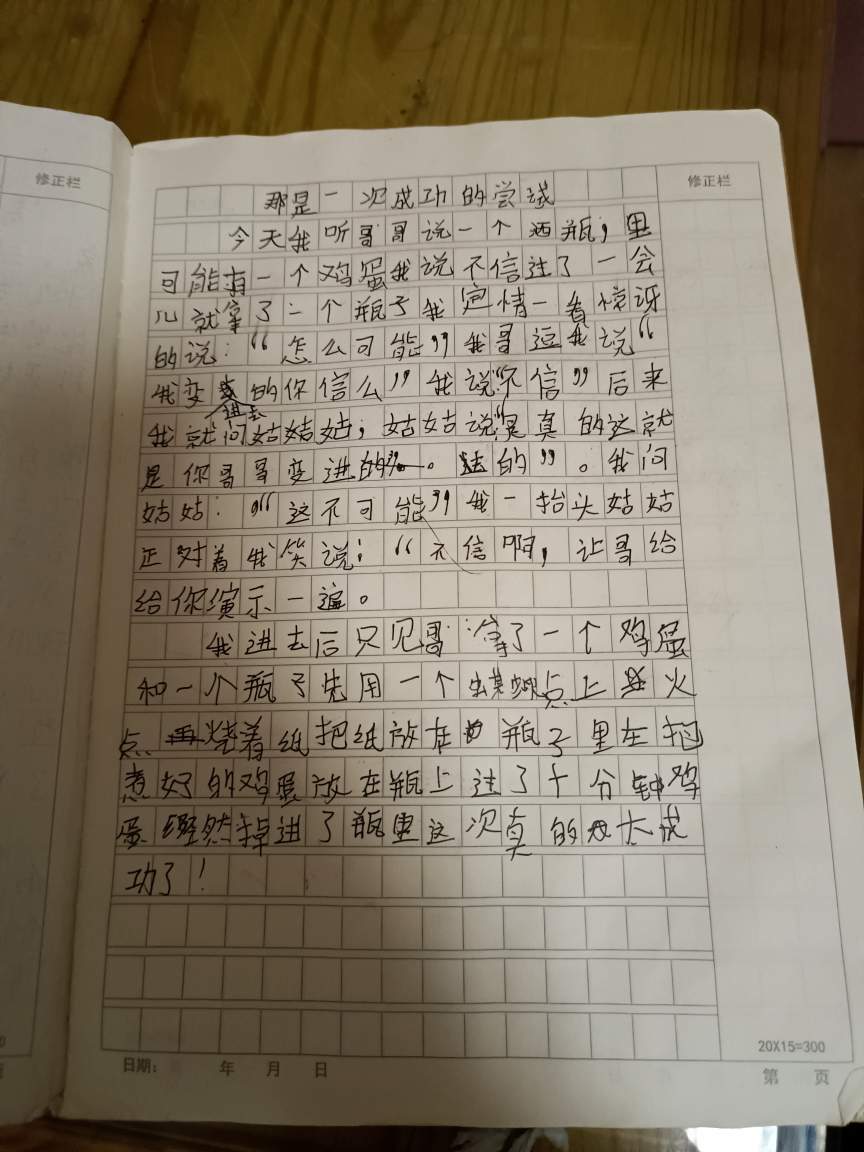 修正栏
修正栏
那是一次成功的尝试
今天我听哥哥说一个酒瓶，里
可能有一个鸡蛋我说不信过了一会
儿就拿了一个瓶子我定情一看惊讶
的说：“怎么可能”我哥逗我说“
我变进去的你信么”我说“不信”后来
我就问姑姑姑，姑姑说“是真的这就
是你哥哥变进去的”。我问
姑姑：“这不可能”我一抬头姑姑
正对着我笑说：“不信啊，让哥给
给你演示一遍。
我进去后只见哥拿了一个鸡蛋
和一个瓶子先用一个点上火
点烧着纸把纸放在瓶子里在把
煮好的鸡蛋放在瓶上过了十分钟鸡
蛋竟然掉进了瓶里这次真的大成
功了！
20X15=300
日期： 年 月 日
第 页